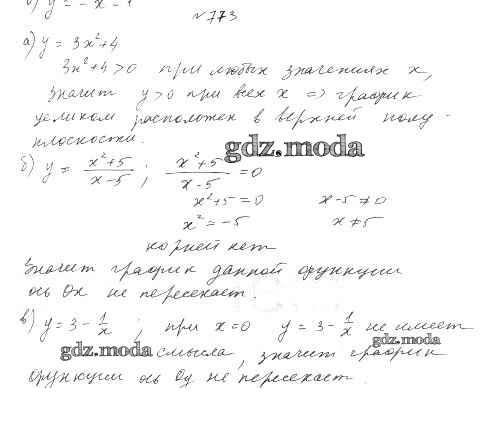 б) y = -x - 1
№ 773
а) y = 3x²+4
3x²+4>0 при любых значениях x,
значит y>0 при всех x => график
целиком расположен в верхней полу-
плоскости.
gdz.moda
б) y = (x²+5)/(x-5) ; (x²+5)/(x-5) = 0
x²+5=0 x-5≠0
x²=-5 x≠5
корней нет
Значит график данной функции
ось Ox не пересекает.
в) y = 3 - 1/x ; при x=0 y = 3 - 1/x не имеет
gdz.moda смысла, значит график gdz.moda
функции ось Oy не пересекает.